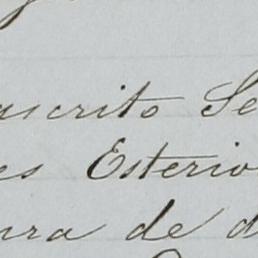 ascrito Se
es Esterio
ura de d